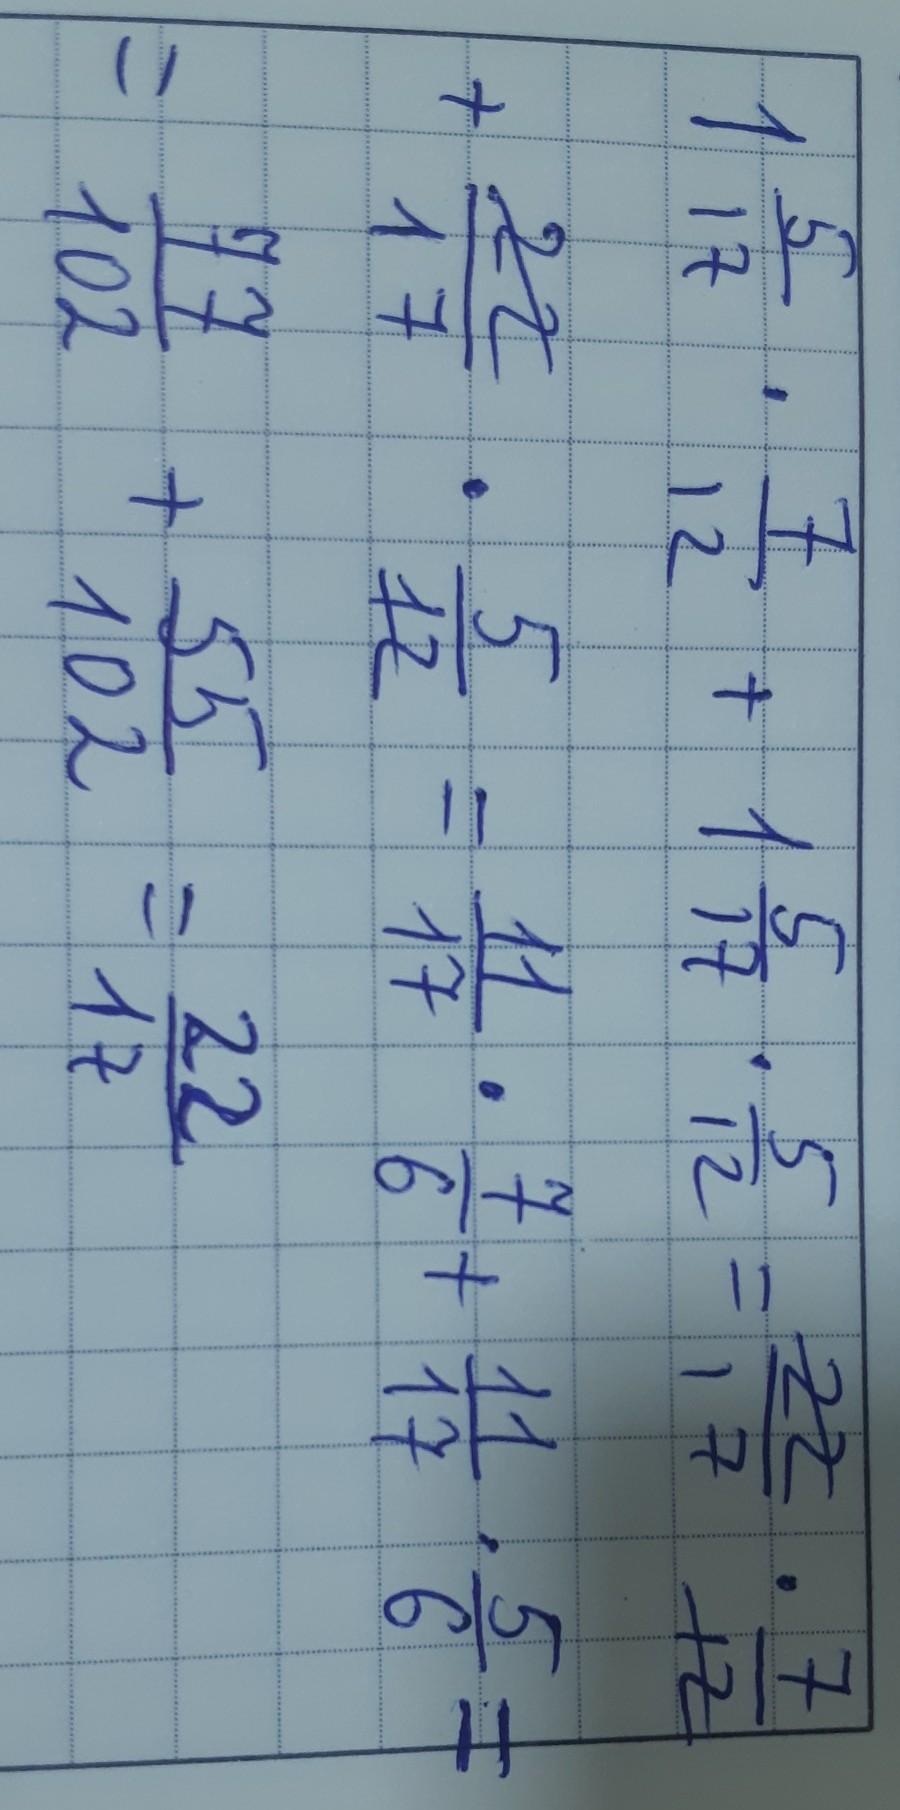 1 5/17 · 7/12 + 1 5/17 · 5/12 = 22/17 · 7/12
+ 22/17 · 5/12 = 11/17 · 7/6 + 11/17 · 5/6 =
= 77/102 + 55/102 = 22/17